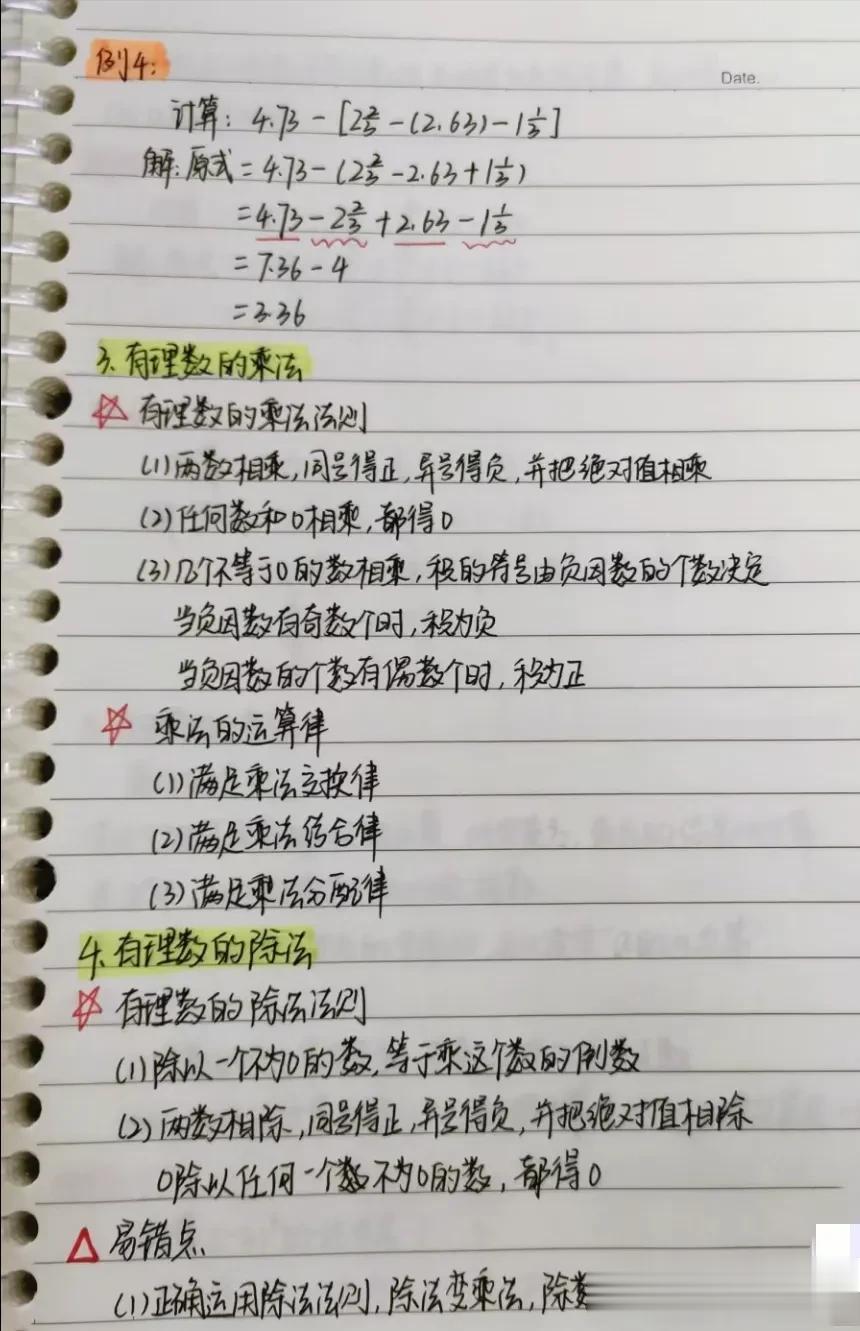 例4:
Date.
计算: 4.73 - [2⅔ - (2.63) - 1⅓]
解:原式 = 4.73 - (2⅔ - 2.63 + 1⅓)
= 4.73 - 2⅔ + 2.63 - 1⅓
= 7.36 - 4
= 3.36
3. 有理数的乘法
☆ 有理数的乘法法则
(1) 两数相乘,同号得正,异号得负,并把绝对值相乘
(2) 任何数和0相乘,都得0
(3) 几个不等于0的数相乘,积的符号由负因数的个数决定
当负因数有奇数个时,积为负
当负因数的个数有偶数个时,积为正
☆ 乘法的运算律
(1) 满足乘法交换律
(2) 满足乘法结合律
(3) 满足乘法分配律
4. 有理数的除法
☆ 有理数的除法法则
(1) 除以一个不为0的数,等于乘这个数的倒数
(2) 两数相除,同号得正,异号得负,并把绝对值相除
0除以任何一个数不为0的数,都得0
△ 易错点
(1) 正确运用除法法则,除法变乘法,除